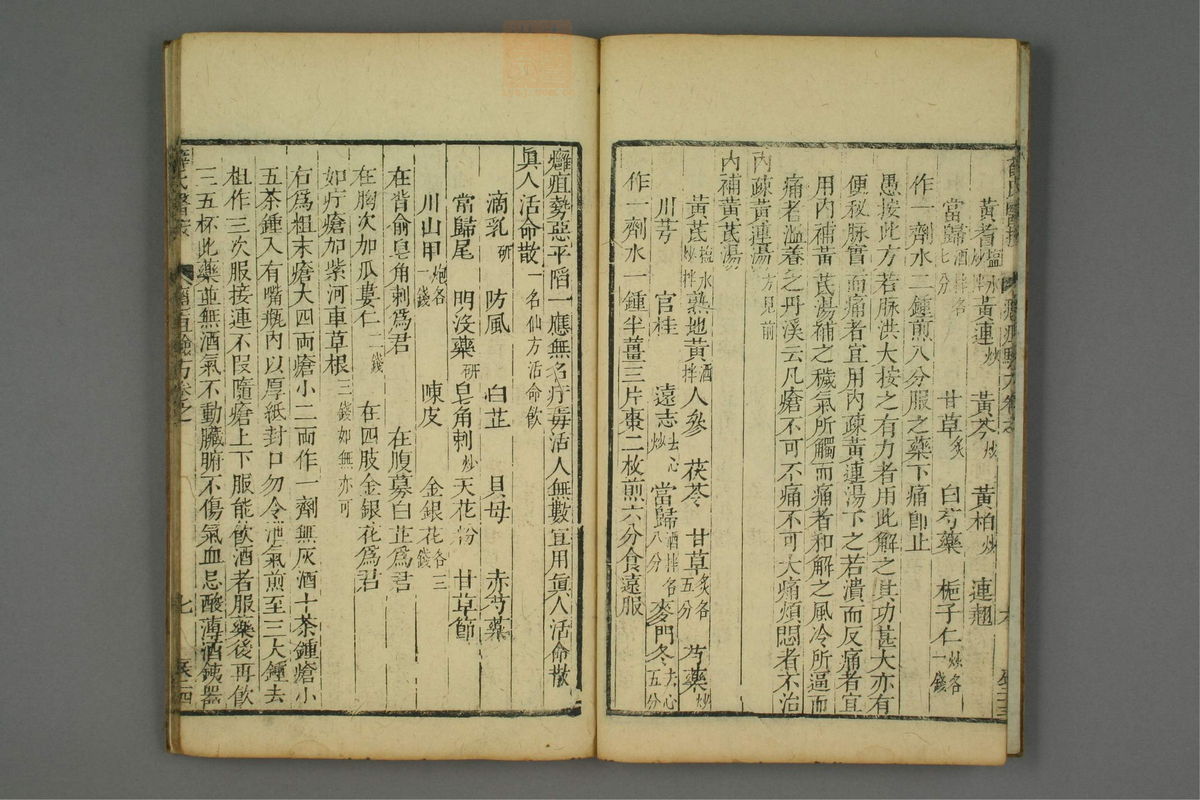 黃耆鹽水炒拌 黃連炒 黃芩炒 黃柏炒 連翹
當歸酒拌各七分 甘草炙 白芍藥 梔子仁炒各一錢
作一劑水二鍾煎八分服之藥下痛卽止
愚按此方若脉洪大按之有力者用此解之其功甚大亦有
便秘脉實而痛者宜用內疎黃連湯下之若潰而反痛者宜
用內補黃芪湯補之穢氣所觸而痛者和解之風冷所逼而
痛者溫養之丹溪云凡瘡不可不痛不可大痛煩悶者不治
內疎黃連湯方見前
內補黃芪湯
黃芪鹽水炒拌 熟地黃酒拌 人參 茯苓 甘草炙各五分 芍藥炒
川芎 官桂 遠志去心炒 當歸酒拌各八分 麥門冬去心五分
作一劑水一鍾半薑三片棗二枚煎六分食遠服
癰疽勢惡平陷一應無名疔毒活人無數宜用眞人活命散
眞人活命散一名仙方活命飮
滴乳研 防風 白芷 貝母 赤芍藥
當歸尾 明沒藥研 皂角刺炒 天花粉 甘草節
川山甲炮各一錢 陳皮 金銀花各三錢
在背俞皂角刺爲君 在腹募白芷爲君
在胸次加瓜蔞仁二錢 在四肢金銀花爲君
如疔瘡加紫河車草根三錢如無亦可
右爲粗末瘡大四兩瘡小二兩作一劑無灰酒十茶鍾瘡小
五茶鍾入有嘴瓶內以厚紙封口勿令泄氣煎至三大鍾去
柤作三次服接連不叚隨瘡上下服能飮酒者服藥後再飮
三五杯此藥並無酒氣不動臟腑不傷氣血忌酸薄酒鐵器
薛氏醫按
七